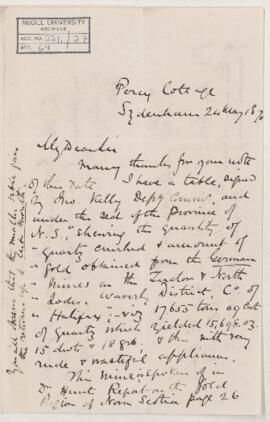 McGILL UNIVERSITY
ARCHIVES
ACC. NO. 221/27
REF. 64
Percy Cottage
Sydenham 24 May 187
My Dear Sir
Many thanks for your note
of this date. I have a table, signed
by Jno. Kelly Depy Comms. and
under the seal of the Province of
N.S., shewing the quantity of
quartz crushed & amount of
Gold obtained from the German
Mines on the Tudor & North
Lodes. Waverly District, Co of
Halifax; 17655 tons
of quartz which yielded 15,698.03.
15 dwts & with very
rude & wasteful appliances.
This Mine is spoken of in
Dr Hunt Report on the Gold
Region of Nova Scotia page 26
You will observe that the
the returns